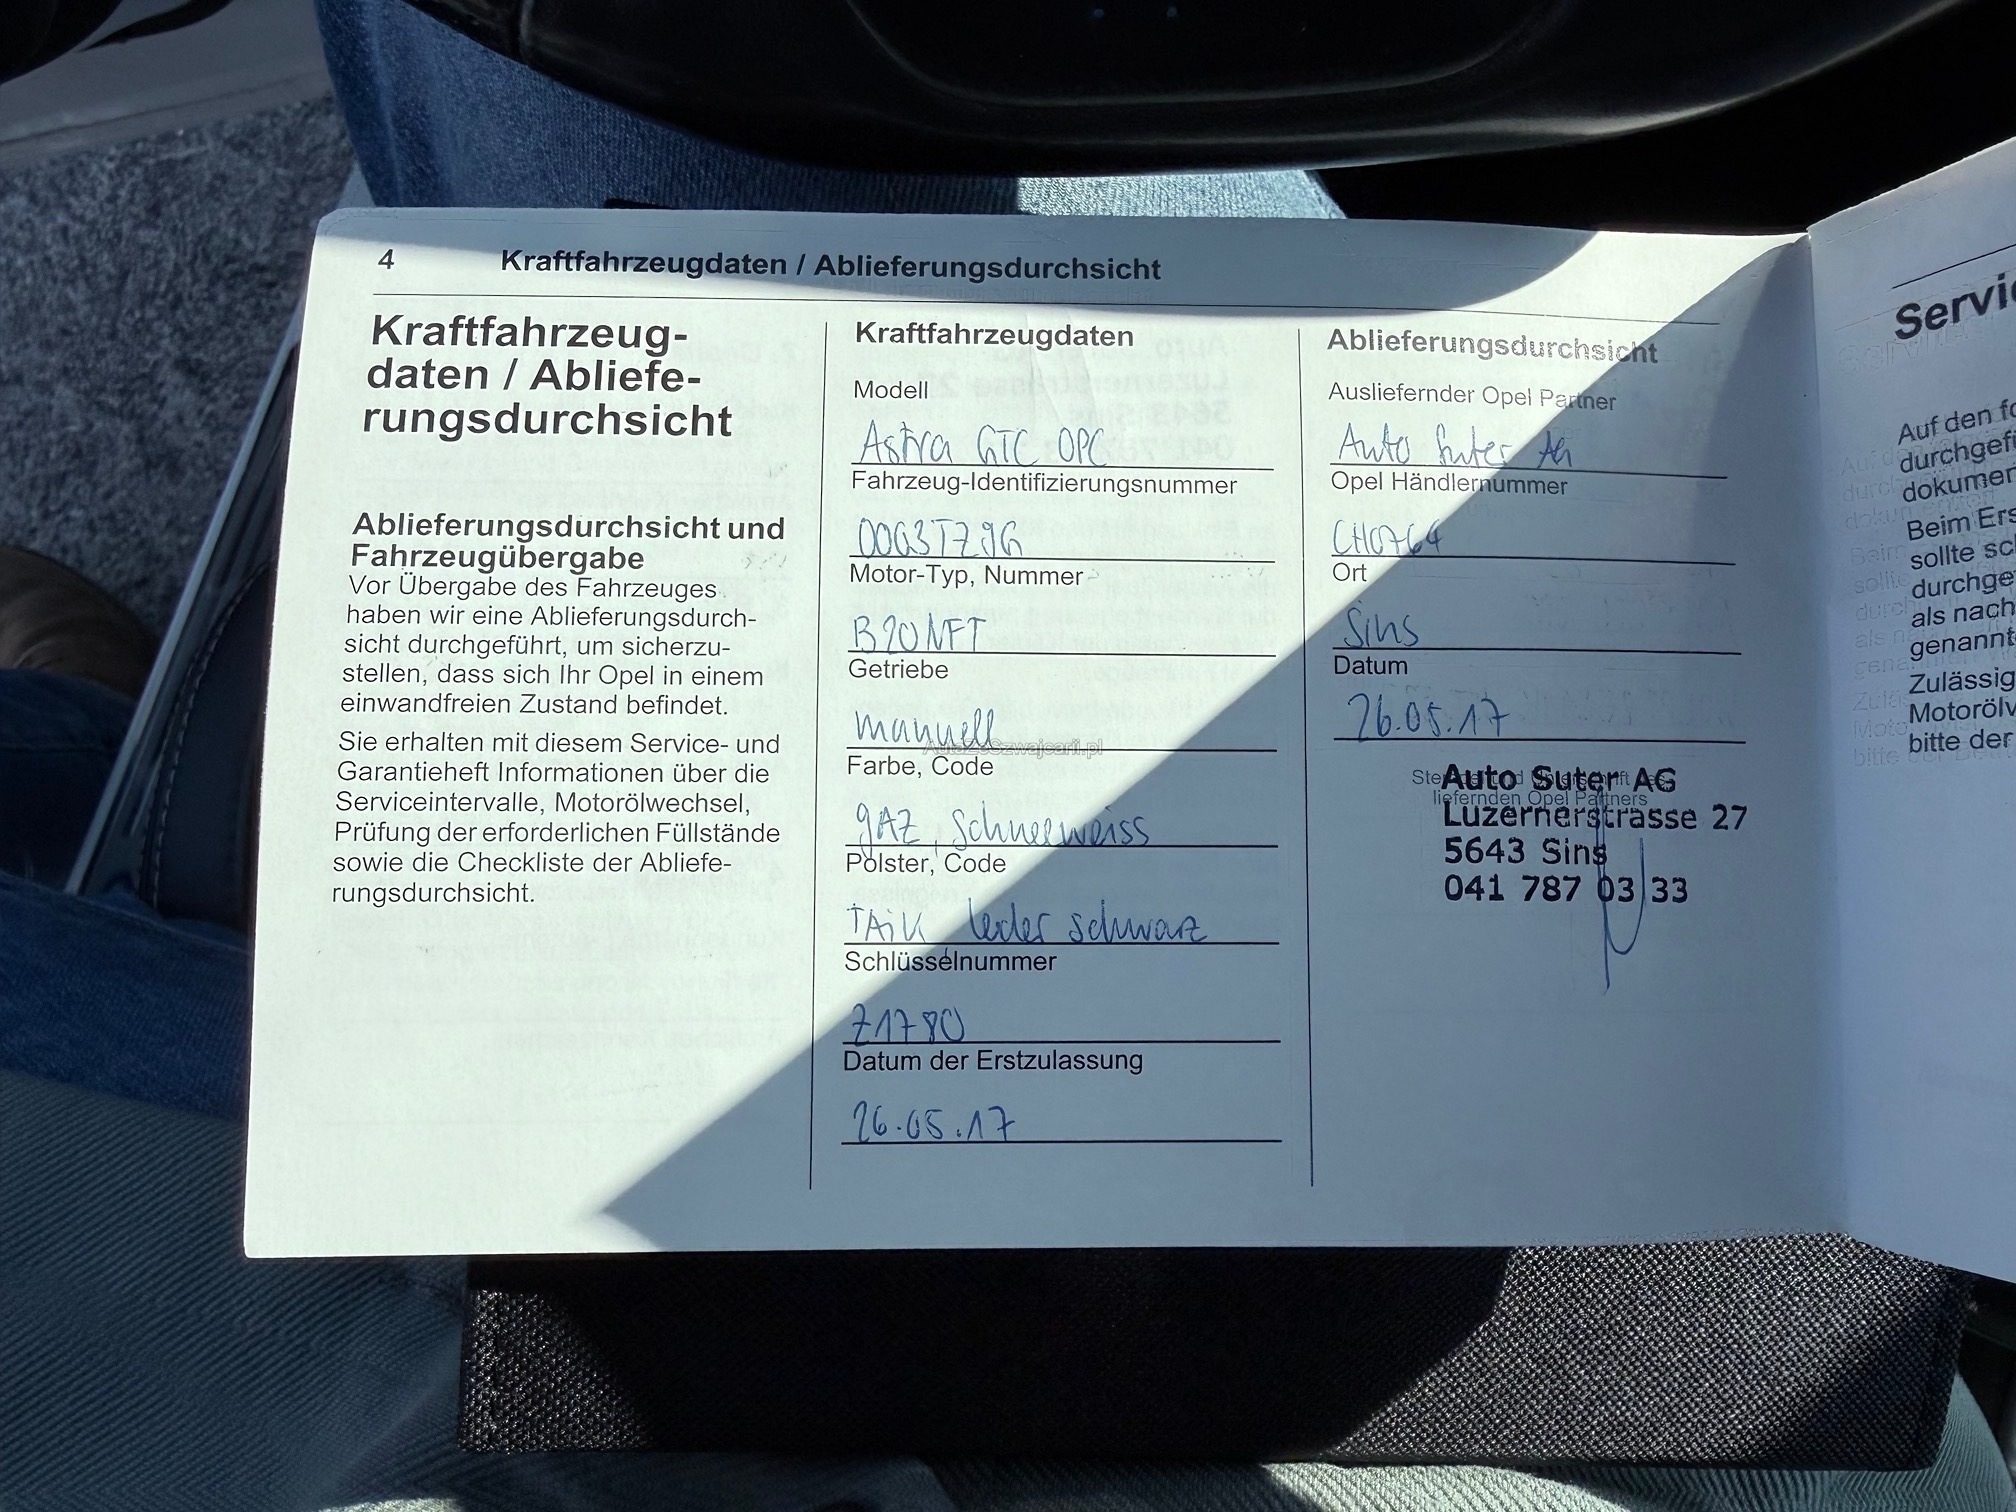 4 Kraftfahrzeugdaten / Ablieferungsdurchsicht
Kraftfahrzeug-
daten / Abliefe-
rungsdurchsicht
Ablieferungsdurchsicht und
Fahrzeugübergabe
Vor Übergabe des Fahrzeuges
haben wir eine Ablieferungsdurch-
sicht durchgeführt, um sicherzu-
stellen, dass sich Ihr Opel in einem
einwandfreien Zustand befindet.
Sie erhalten mit diesem Service- und
Garantieheft Informationen über die
Serviceintervalle, Motorölwechsel,
Prüfung der erforderlichen Füllstände
sowie die Checkliste der Abliefe-
rungsdurchsicht.
Kraftfahrzeugdaten
Modell
Astra GTC OPC
Fahrzeug-Identifizierungsnummer
Motor-Typ, Nummer
B20NFT
Getriebe
manuell
AutaZeSzwajcarii.pl
Farbe, Code
GAZ, Schneeweiss
Polster, Code
TAIK Leder schwarz
Schlüsselnummer
Z1780
Datum der Erstzulassung
26.05.17
Ablieferungsdurchsicht
Ausliefernder Opel Partner
Auto Suter AG
Opel Händlernummer
CH0764
Ort
Sins
Datum
26.05.17
liefernden Opel Partners
Auto Suter AG
Luzernerstrasse 27
5643 Sins
041 787 03 33
Auf den
durchgef
dokumen
Beim Ers
sollte sc
durchge
als nach
genannt
Zulässig
Motorölv
bitte der